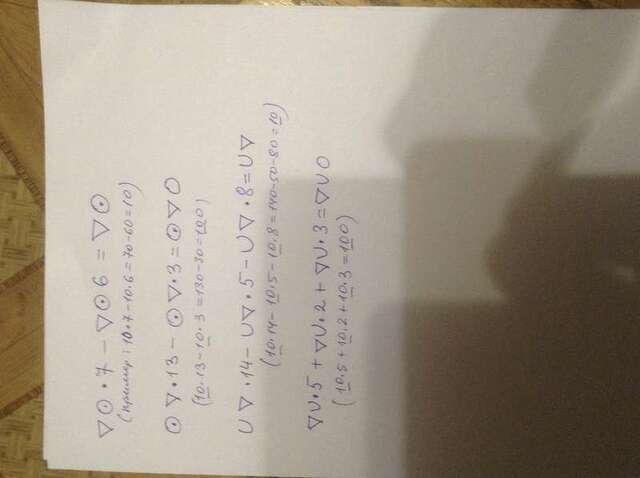 ▽⊙・7 − ▽⊙ 6 = ▽⊙
(пример: 10・7−10・6=70−60=10)
⊙▽・13 − ⊙▽・3=⊙▽0
(10・13−10・3=130−30=100)
U▽・14− U▽・5−U▽・8=U▽
(10・14−10・5−10・8=140−50−80=10)
▽U・5 + ▽U・2 + ▽U・3=▽U0
(10・5+10・2+10・3=100)